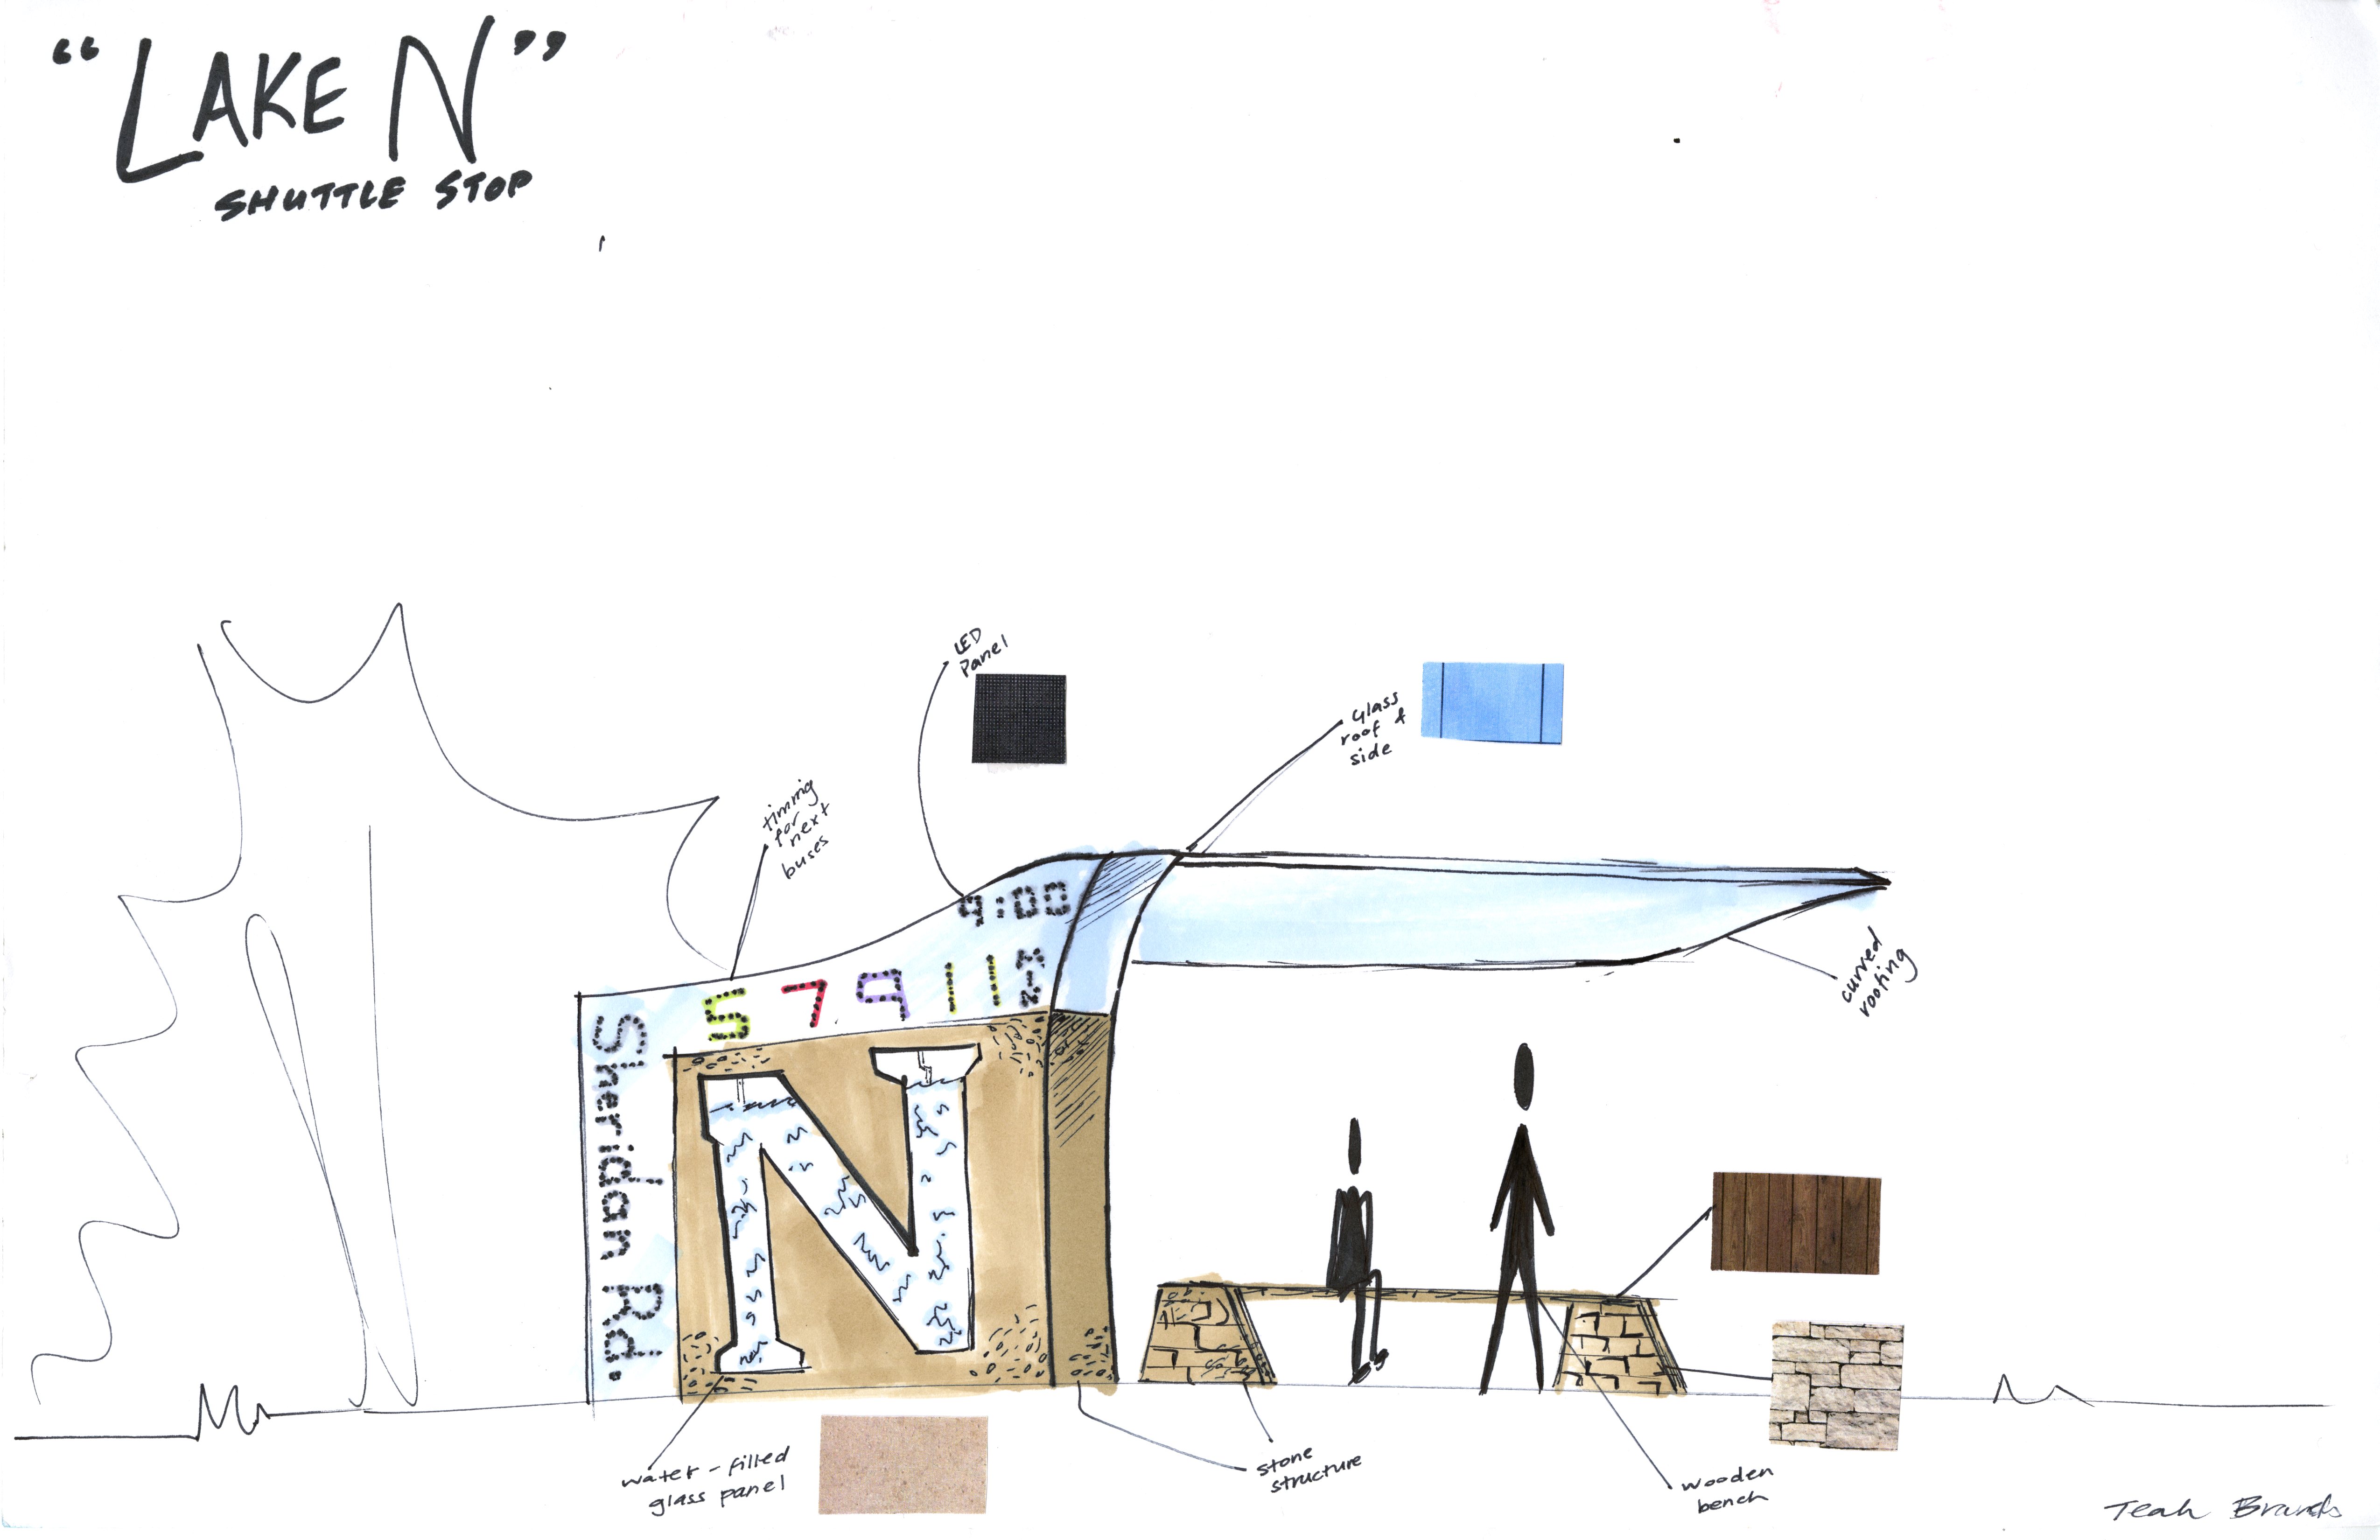 “LAKE N”
SHUTTLE STOP
LED
Panel
Glass
roof &
side
timing
for
next
buses
9:00
5 7 9 11
Sheridan Rd.
N
curved
roofing
water-filled
glass panel
stone
structure
wooden
bench
Teah